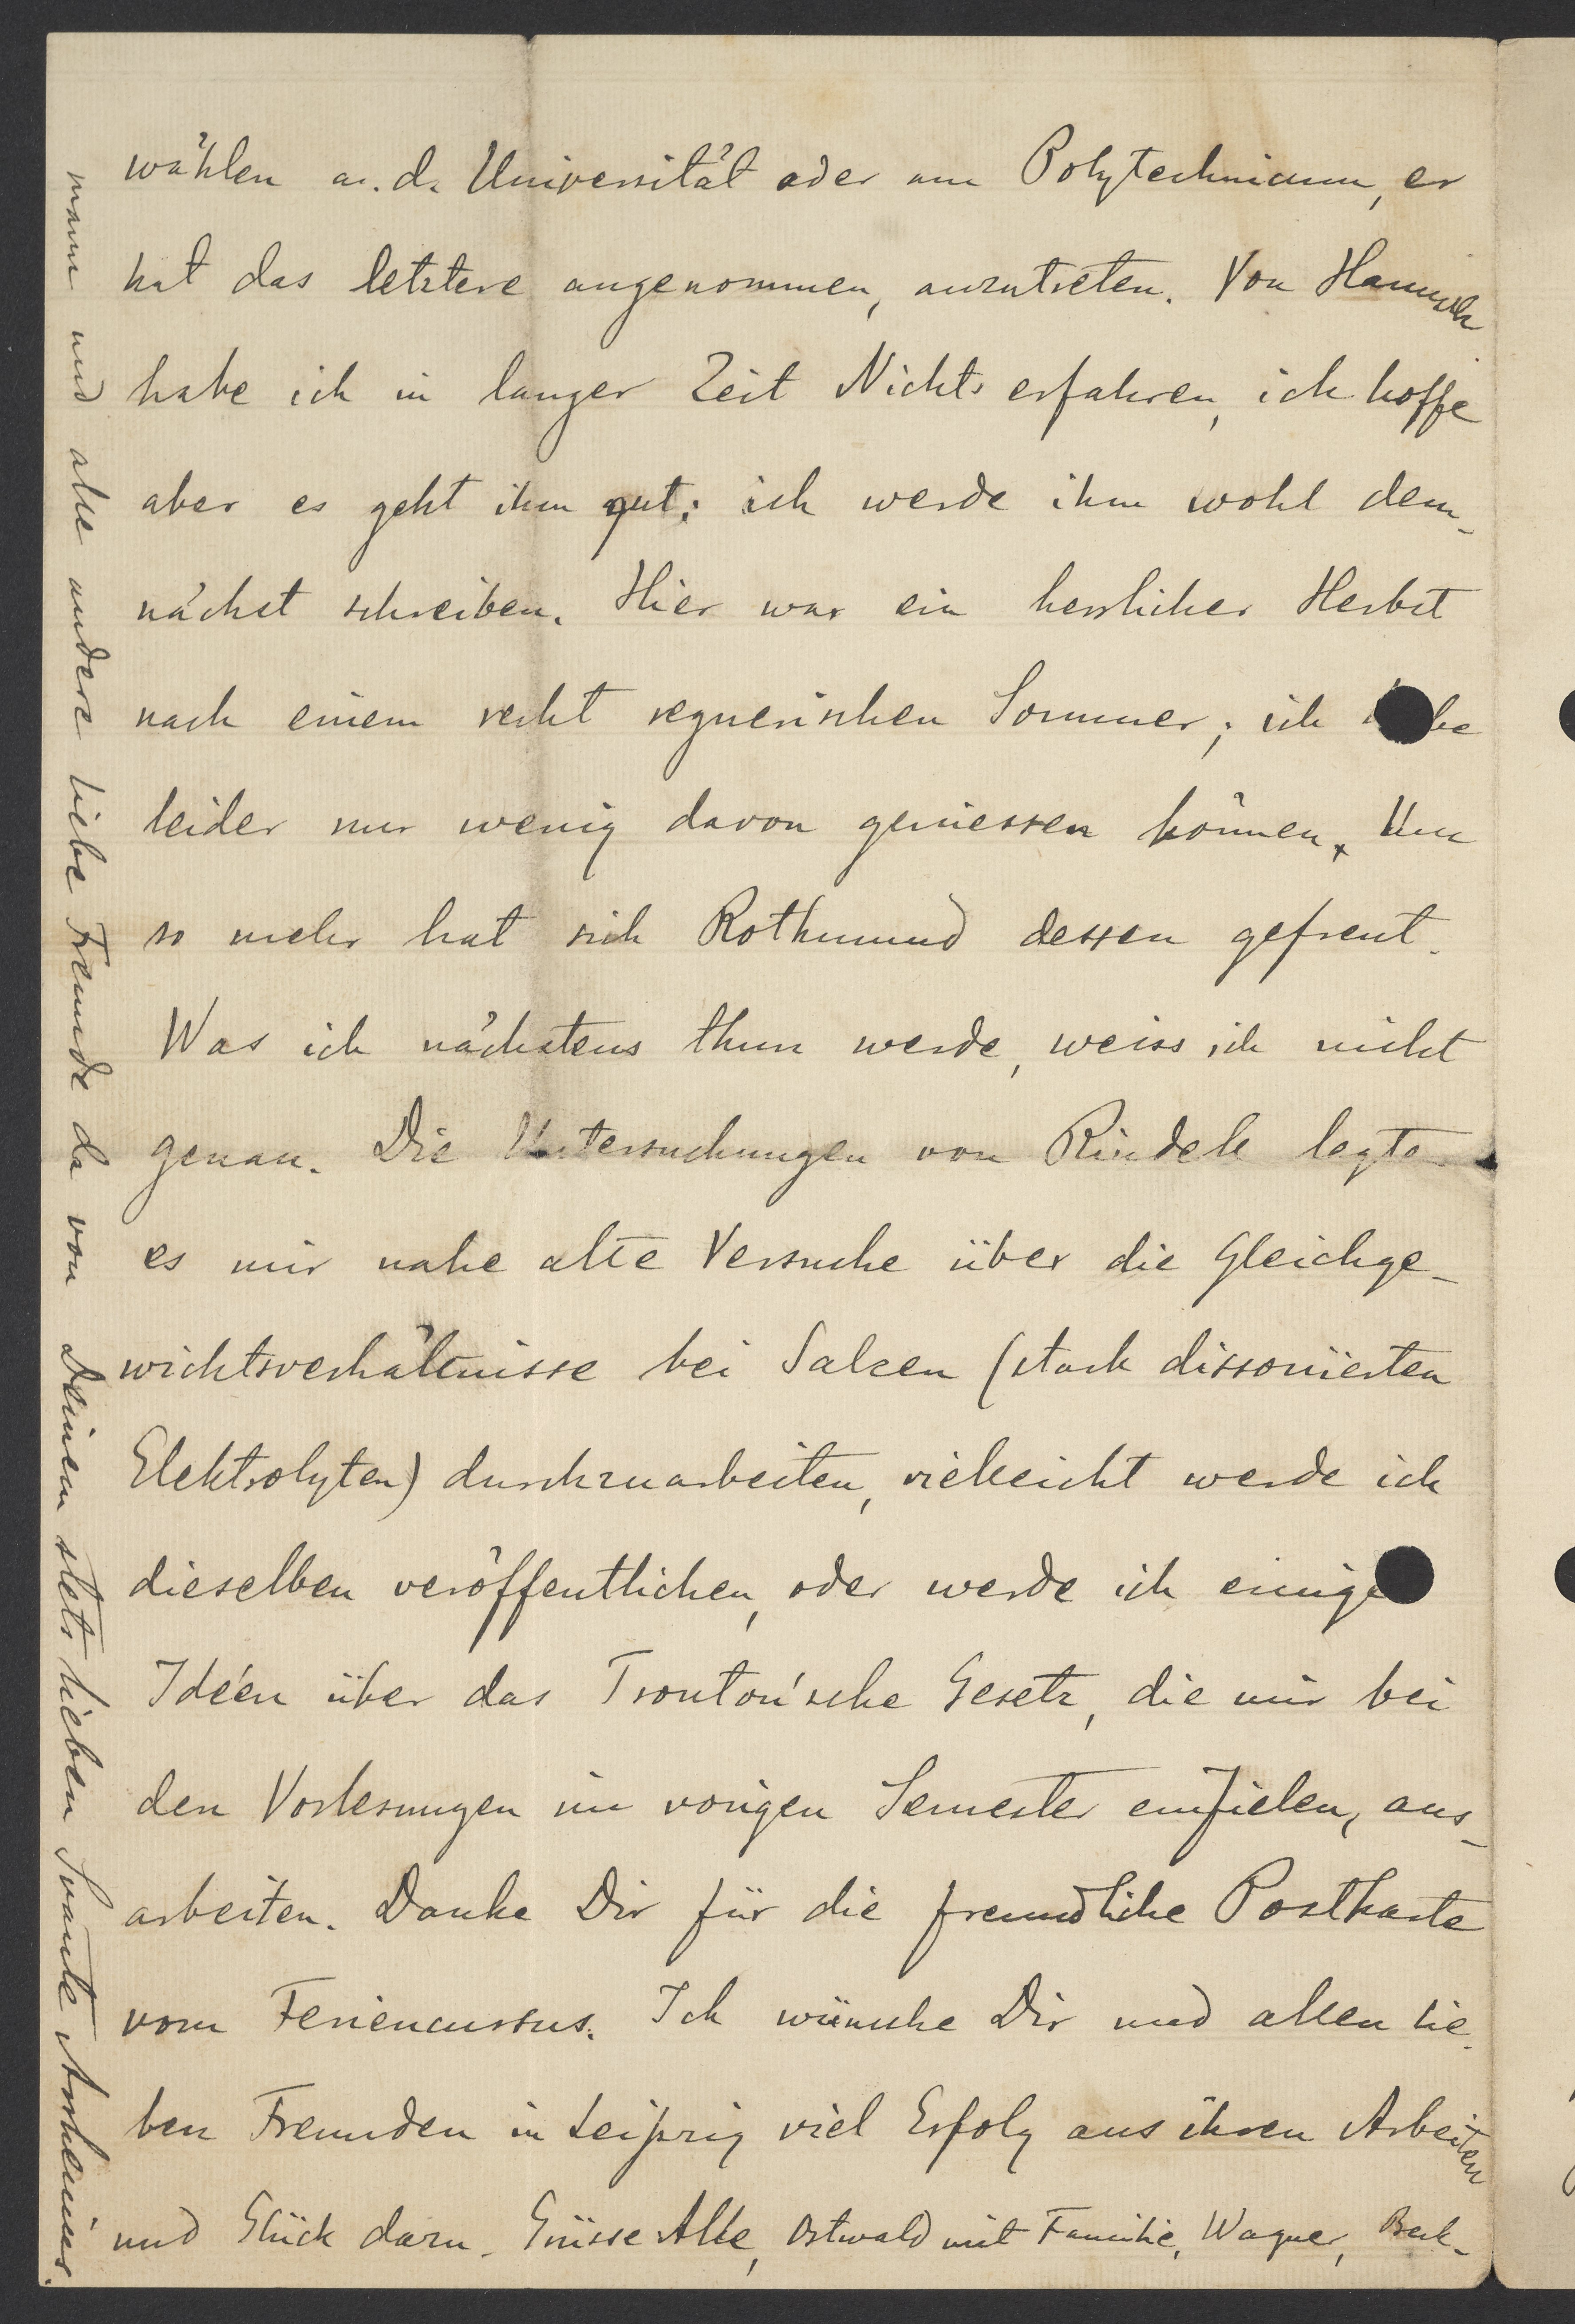 wählen an d. Universität oder am Polytechnicum, er
hat das letztere angenommen, anzutreten. Von
habe ich in langer Zeit Nichts erfahren, ich hoffe
aber es geht ihm gut; ich werde ihm wohl dem-
nächst schreiben. Hier war ein herrlicher Herbst
nach einem recht regnerischen Sommer; ich habe
leider nur wenig davon geniessen können. Um
so mehr hat sich Rothmund dessen gefreut.
Was ich nächstens thun werde, weiss ich nicht
genau. Die Untersuchungen von Rindell legte
es mir nahe alte Versuche über die Gleichge-
wichtsverhältnisse bei Salzen (stark dissociierten
Elektrolyten) durchzuarbeiten, vielleicht werde ich
dieselben veröffentlichen, oder werde ich einige
Idéen über das Trouton'sche Gesetz, die mir bei
den Vorlesungen im vorigen Semester einfielen, aus-
arbeiten. Danke Dir für die freundliche Postkarte
vom Feriencursus. Ich wünsche Dir und allen lie-
ben Freunden in Leipzig viel Erfolg aus ihren Arbeiten
und Glück dazu. Grüsse Alle, Ostwald mit Familie, Wagner, Beck-
mann und alle andere liebe Freunde da von Deinem stets lieben Svante Arrhenius.